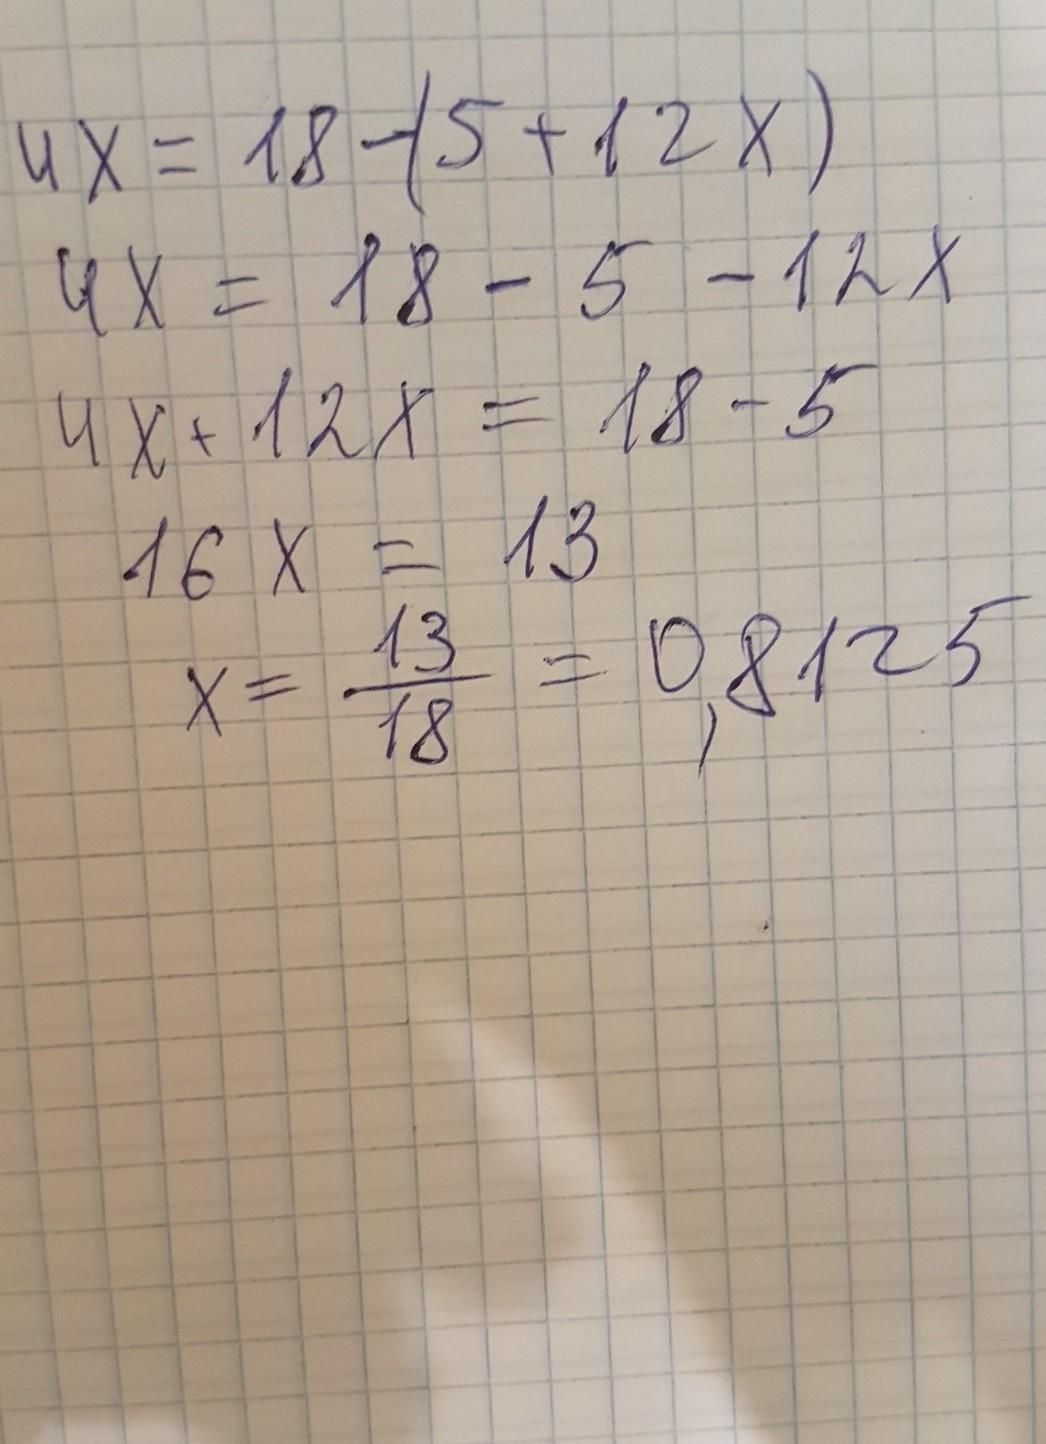 4x = 18 - (5 + 12x)
4x = 18 - 5 - 12x
4x + 12x = 18 - 5
16x = 13
x = 13/18 = 0,8125